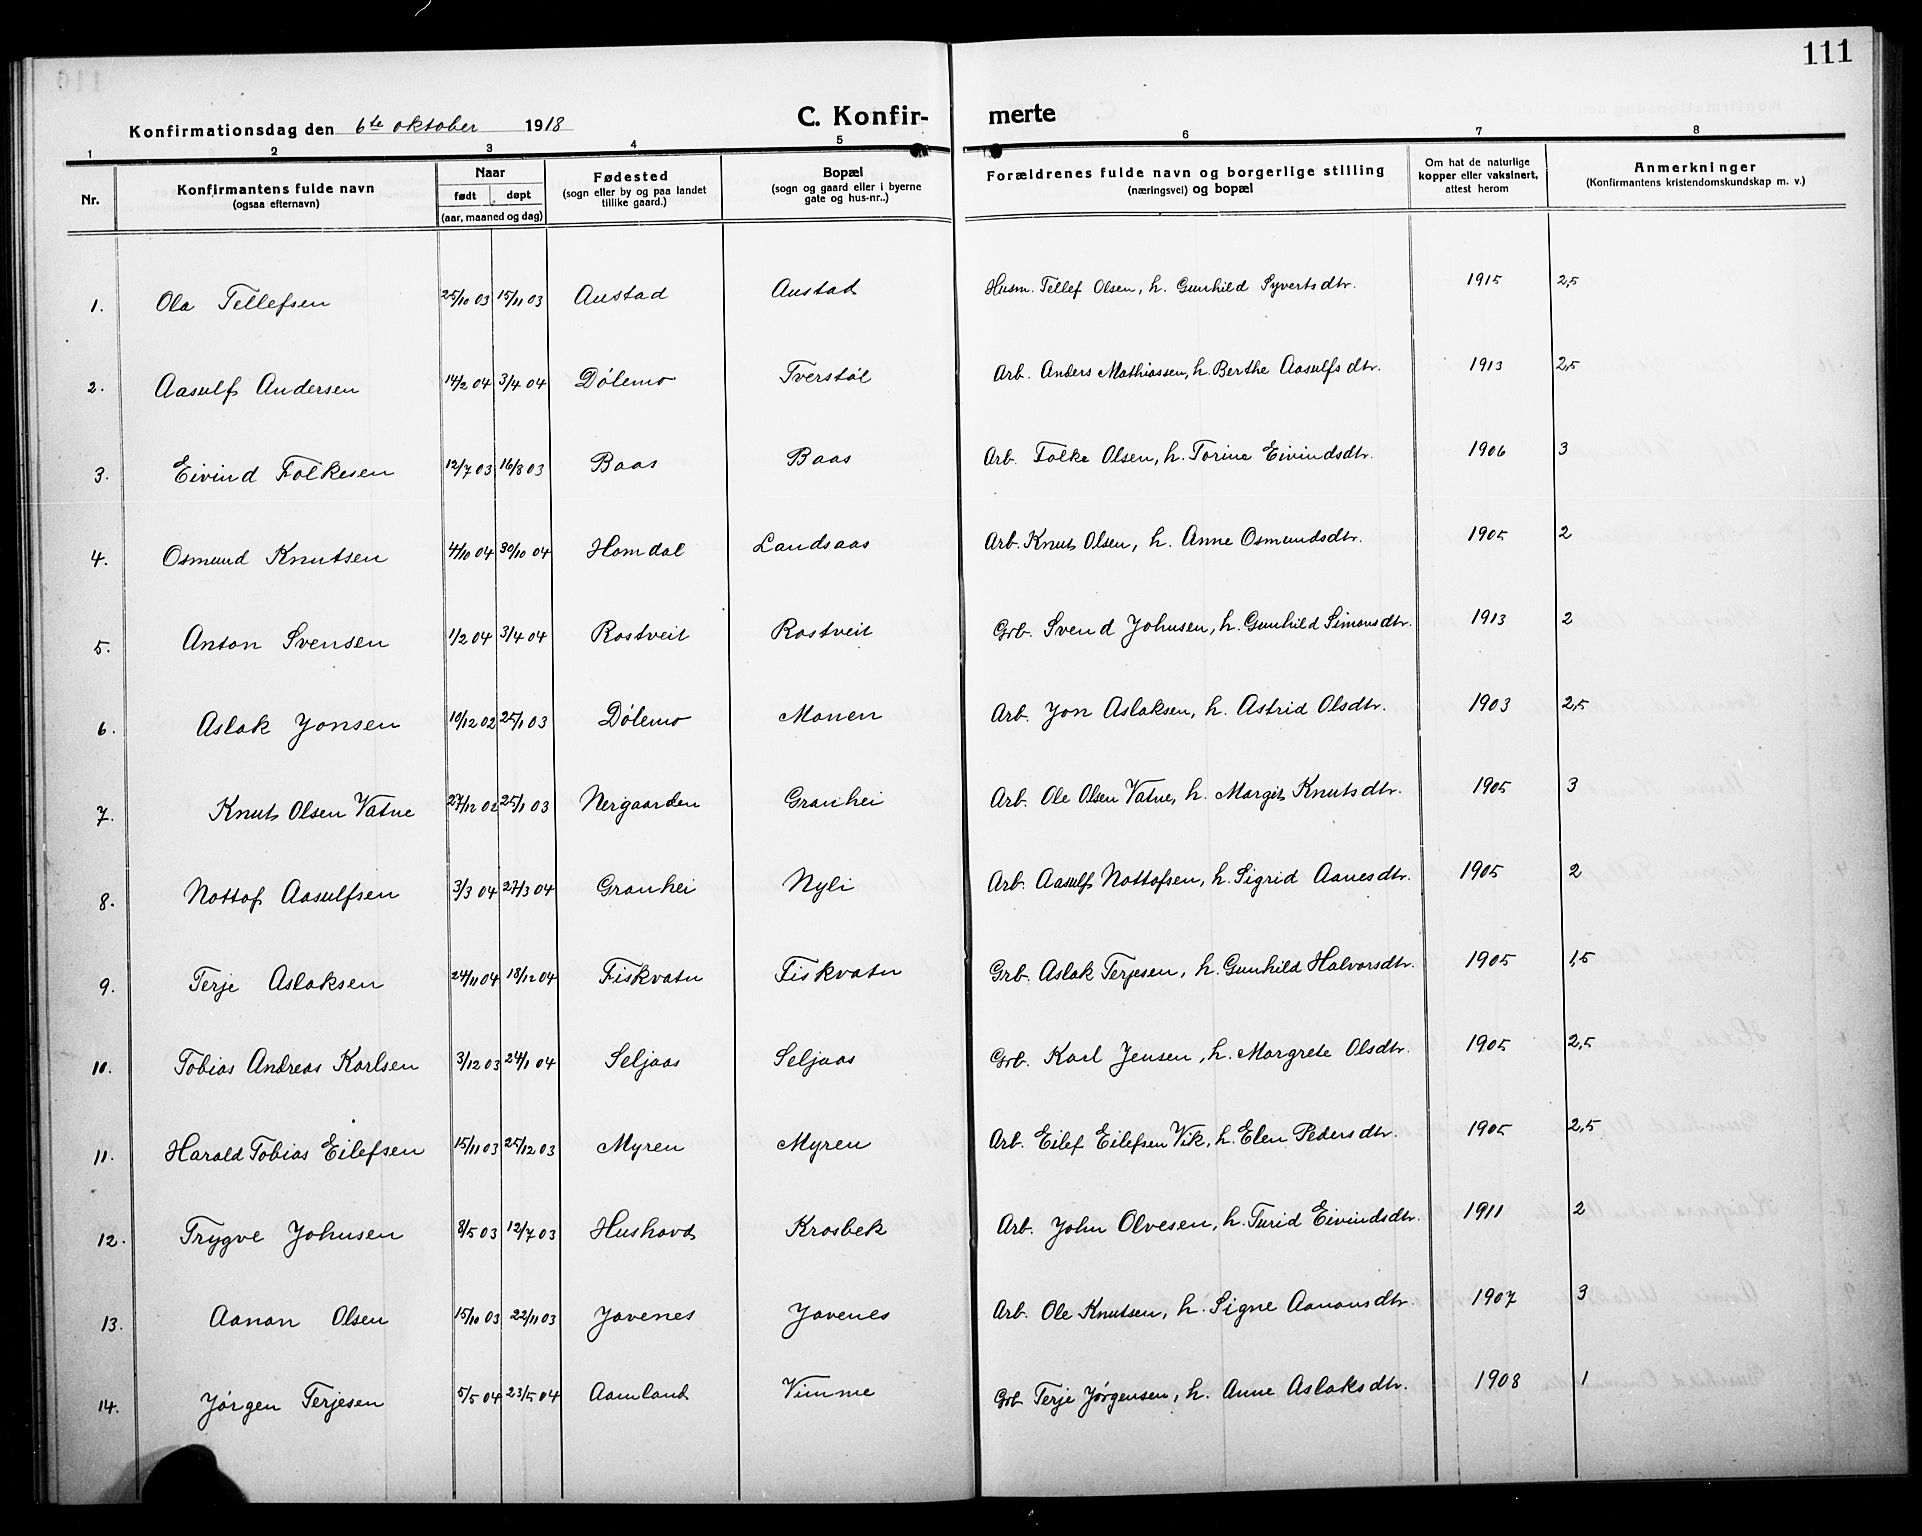 111
Konfirmationsdag den 6te oktober 1918
C. Konfir- merte
1 2 3 4 5 6 7 8
Nr. Konfirmantens fulde navn (ogsaa efternavn) Naar født døpt (aar, maaned og dag) Fødested (sogn eller by og paa landet tillike gaard.) Bopæl (sogn og gaard eller i byerne gate og hus-nr..) Forældrenes fulde navn og borgerlige stilling (næringsvei) og bopæl Om hat de naturlige kopper eller vaksinert, attest herom Anmerkninger (Konfirmantens kristendomskundskap m. v.)
1. Ola Tellefsen 25/10 03 15/11 03 Austad Austad Husm. Tellef Olsen, h. Gunhild Syvertsdtr. 1915 2,5
2. Aasulf Andersen 14/2 04 3/4 04 Dølemo Tverstøl Arb. Anders Mathiassen, h. Berthe Aasulfsdtr. 1913 2,5
3. Eivind Folkesen 12/7 03 16/8 03 Baas Baas Arb. Folke Olsen, h. Torine Eivindsdtr. 1906 3
4. Osmund Knutsen 4/10 04 30/10 04 Homdal Landsaas Arb. Knut Olsen, h. Anne Osmundsdtr. 1905 2
5. Anton Svensen 1/2 04 3/4 04 Rostveit Rostveit Grb. Svend Johnsen, h. Gunhild Simonsdtr. 1913 2
6. Aslak Jonsen 10/12 02 25/1 03 Dølemo Monen Arb. Jon Aslaksen, h. Astrid Olsdtr. 1903 2,5
7. Knut Olsen Vatne 27/12 02 25/1 03 Nergaarden Granhei Arb. Ole Olsen Vatne, h. Margit Knutsdtr. 1905 3
8. Nottof Aasulfsen 3/3 04 27/3 04 Granhei Nyli Arb. Aasulf Nottofsen, h. Sigrid Aanesdtr. 1905 2
9. Terje Aslaksen 24/11 04 18/12 04 Fiskvatn Fiskvatn Grb. Aslak Terjesen, h. Gunhild Halvorsdtr. 1905 1,5
10. Tobias Andreas Karlsen 3/12 03 24/1 04 Seljaas Seljaas Grb. Karl Jensen, h. Margrete Olsdtr. 1905 2,5
11. Harald Tobias Eilefsen 15/11 03 25/12 03 Myren Myren Arb. Eilef Eilefsen Vik, h. Elen Pedersdtr. 1905 2,5
12. Trygve Johnsen 8/5 03 12/7 03 Hushovd Krosbek Arb. John Olvesen, h. Turid Eivindsdtr. 1911 2
13. Aanon Olsen 15/10 03 22/11 03 Jovenes Jovenes Arb. Ole Knutsen, h. Signe Aanonsdtr. 1907 3
14. Jørgen Terjesen 5/5 04 23/5 04 Aamland Vimme Grb Terje Jørgensen, h. Anne Aslaksdtr. 1908 1